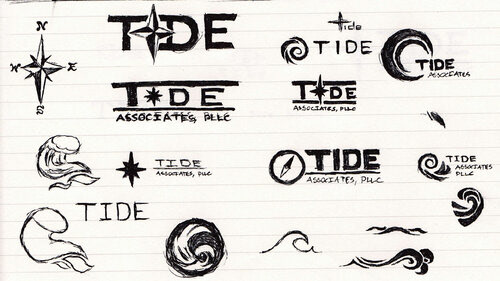 N
W E
S
TIDE
Tide
TIDE
TIDE
ASSOCIATES
TIDE
ASSOCIATES, PLLC
TIDE
ASSOCIATES, PLLC
TIDE
ASSOCIATES, PLLC
TIDE
ASSOCIATES, PLLC
TIDE
ASSOCIATES
PLLC
TIDE